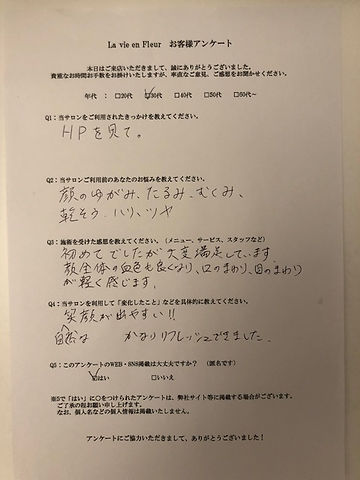 La vie en Fleur お客様アンケート
本日はご来店いただきまして、誠にありがとうございました。
貴重なお時間お手数をお掛けいたしますが、率直なご意見、ご感想をお聞かせください。
年代 : □20代 ☑30代 □40代 □50代 □60代~
Q1:当サロンをご利用されたきっかけを教えてください。
HPを見て。
Q2:当サロンご利用前のあなたのお悩みを教えてください。
顔のゆがみ、たるみ、むくみ、
乾そう ハリ、ツヤ
Q3:施術を受けた感想を教えてください。(メニュー、サービス、スタッフなど)
初めてでしたが大変満足しています。
顔全体の血色も良くなり、口のまわり、目のまわり
が軽く感じます。
Q4:当サロンを利用して「変化したこと」などを具体的に教えてください。
笑顔が出やすい!!
自然な かなりリフレッシュできました。
Q5:このアンケートのWEB・SNS掲載は大丈夫ですか? (匿名です)
☑はい □いいえ
※5で「はい」に○をつけられたアンケートは、弊社サイト等に掲載する場合がございます。
ご了承の程お願い申し上げます。
なお、個人名などの個人情報は掲載いたしません。
アンケートにご協力いただきまして、ありがとうございました!